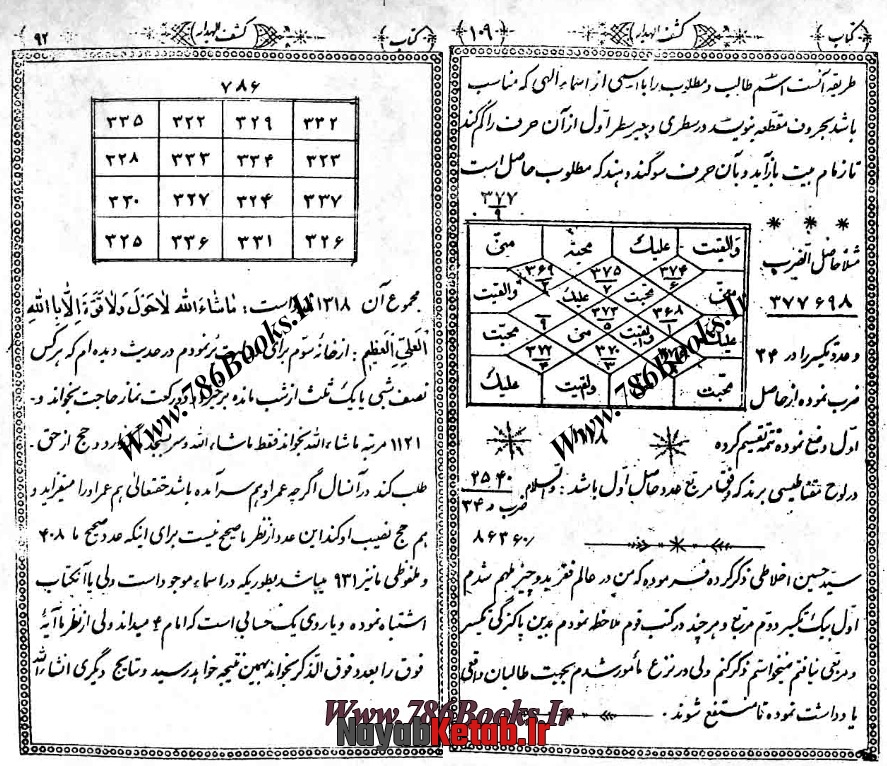 کتاب
کشف الهدار
۱۰۹
طریقه آنست اسم طالب و مطلوب را با اسمی از اسماء الهی که مناسب
باشد بحروف مقطعه بنویسد در سطری و بغیر سطر اول از آن حرف را گم کند
تا زمام بیت باز آید و بآن حرف سوگند دهند که مطلوب حاصل است
۳۷۷
۹
مثلا حاصل الضرب
۳۷۷۶۹۸
و عدد تکسیر را در ۳۴
ضرب نموده از حاصل
والقیت علیك محبة منی
۳۶۹ ۳۷۵ ۳۷۴
۲ ۷ ۶
والقیت علیك محبت منی
۳۷۳ ۳۶۸
۵ ۱
محبت ۹ منی والقیت علیك
۳۷۲ ۳۷۰
۴ ۳
علیك والقیت منی محبت
اول وضع نموده تتمه تقسیم کرده
در لوح مغناطیسی برند که وفق مربع عدد حاصل اول باشد : والسلام
۲۵۴۰
ضرب در ۳۴
۸۶۳۶۰
سید حسین اخلاطی ذکر کرده فرموده که من در عالم فقر بدو چیز ملهم شدم
اول یک تکسیر دوم مربع و هر چند در کتب قوم ملاحظه نمودم بدین پاکیزگی تکسیر
و مربعی نیافتم میخواستم ذکر نکنم ولی در نزع مأمور شدم بجهت طالبان واقعی
یادداشت نموده تا منتفع شوند .
کتاب
کشف الهدار
۹۲
۷۸۶
۳۳۵ ۳۲۲ ۳۲۹ ۳۳۲
۳۲۸ ۳۳۳ ۳۳۴ ۳۲۳
۳۳۰ ۳۲۷ ۳۲۴ ۳۳۷
۳۲۵ ۳۳۶ ۳۳۱ ۳۲۶
مجموع آن ۱۳۱۸ است : ماشاءالله لاحول ولاقوة الا بالله
العلی العظیم : از خانه سوم برای نمودم در حدیث دیده ام که هر کس
نصف شبی یا یک ثلث از شب مانده برخیزد دو رکعت نماز حاجت بخواند و
۱۱۲۱ مرتبه ماشاءالله بخواند فقط ماشاءالله و سر بسجده گذارد و حج از حق
طلب کند در آنسال اگر چه عمر او هم سر آمده باشد حقتعالی هم عمر او را میفزاید و
هم حج نصیب او کند این عدد از نظر ما صحیح نیست برای اینکه عدد صحیح ما ۴۰۸
و ملفوظی ما نیز ۹۳۱ میباشد بطوریکه در اسماء موجود است ولی یا آنکتاب
اشتباه نموده و یا روی یک حسابی است که امام ۴ میداند ولی از نظر ما آیة
فوق را بعدد فوق الذکر بخواند بهمین نتیجه خواهد رسید و نتایج دیگری انشاءالله
Www.786Books.Ir
Www.786Books.Ir
Www.786Books.Ir
NayabKetab.Ir